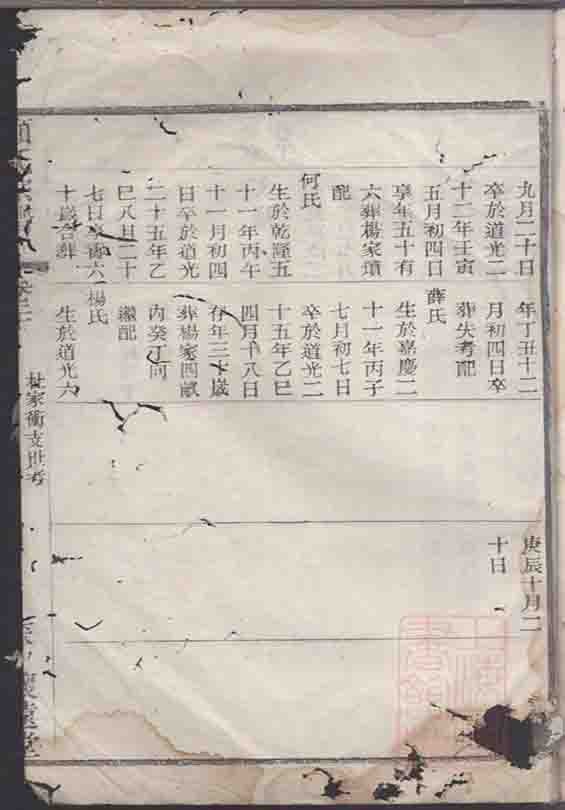 九月二十日
卒於道光二
十二年壬寅
五月初四日
享年五十有
六葬楊家墳
配
何氏
生於乾隆五
十一年丙午
十一月初四
日卒於道光
二十五年乙
巳八月二十
七日享壽六
十歲合葬
年丁丑十二
月初四日卒
葬失考配
薛氏
生於嘉慶二
十一年丙子
七月初七日
卒於道光二
十五年乙巳
四月十八日
存年三十歲
葬楊家四畝
內癸丁向
繼配
楊氏
生於道光六
庚辰十月二
十日
杜家衖支世考